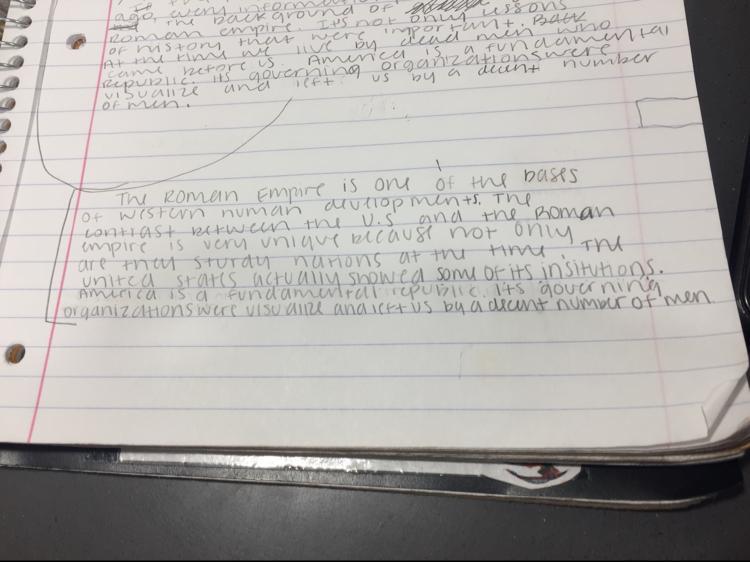 ago, every informatio
the background of lessons
Roman empire. It's not only
of history that were important. Back
At the time we live by dead men who
came before us. America is a fundamental
republic. Its governing organizations were
visualize and left us by a decent number
of men.
The Roman Empire is one of the bases
of western human developments. The
contrast between the U.S and the Roman
empire is very unique because not only
are they sturdy nations at the time. The
united states actually showed some of its insitutions.
America is a fundamental republic. Its governing
organizations were visualize and left us by a decent number of men.